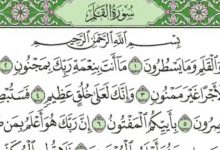 سُورَةُ القَلَمِ
بِسْمِ اللَّهِ الرَّحْمَٰنِ الرَّحِيمِ
وَالْقَلَمِ وَمَا يَسْطُرُونَ ١ مَا أَنتَ بِنِعْمَةِ رَبِّكَ بِمَجْنُونٍ ٢
لَأَجْرًا غَيْرَ مَمْنُونٍ ٣ وَإِنَّكَ لَعَلَىٰ خُلُقٍ عَظِيمٍ ٤ فَسَتُبْصِ
صِرُونَ ٥ بِأَييِّكُمُ الْمَفْتُونُ ٦ إِنَّ رَبَّكَ هُوَ أَعْلَمُ بِمَن